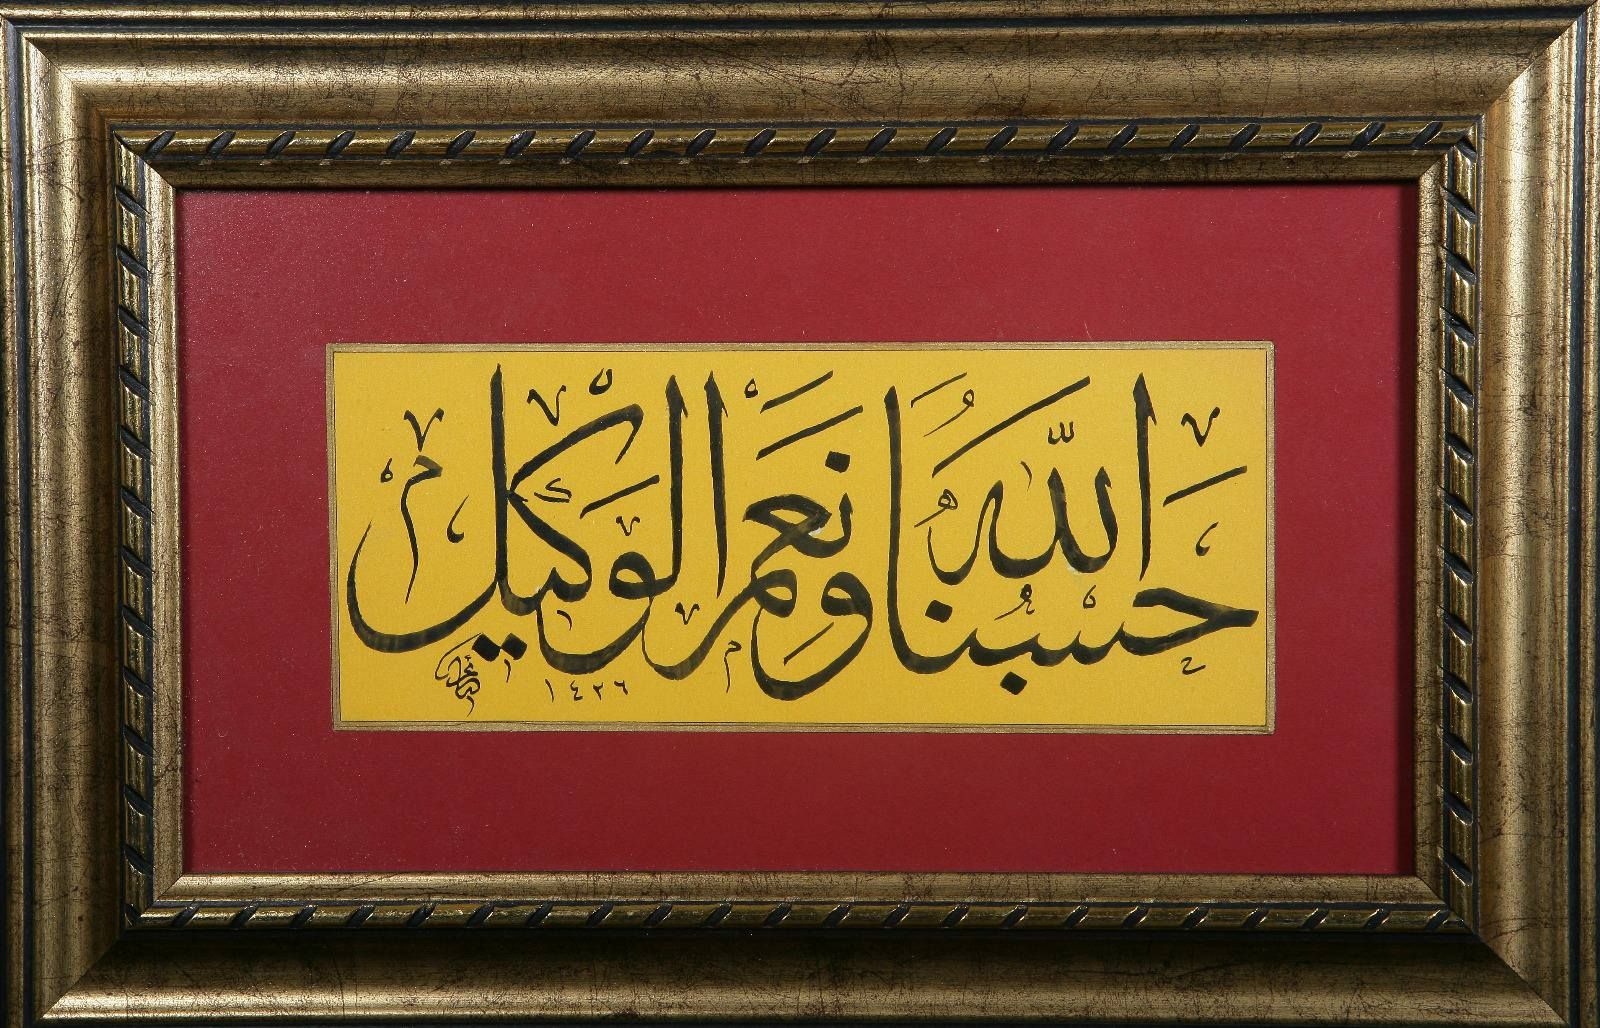 حسبنا الله ونعم الوكيل
١٤٢٦